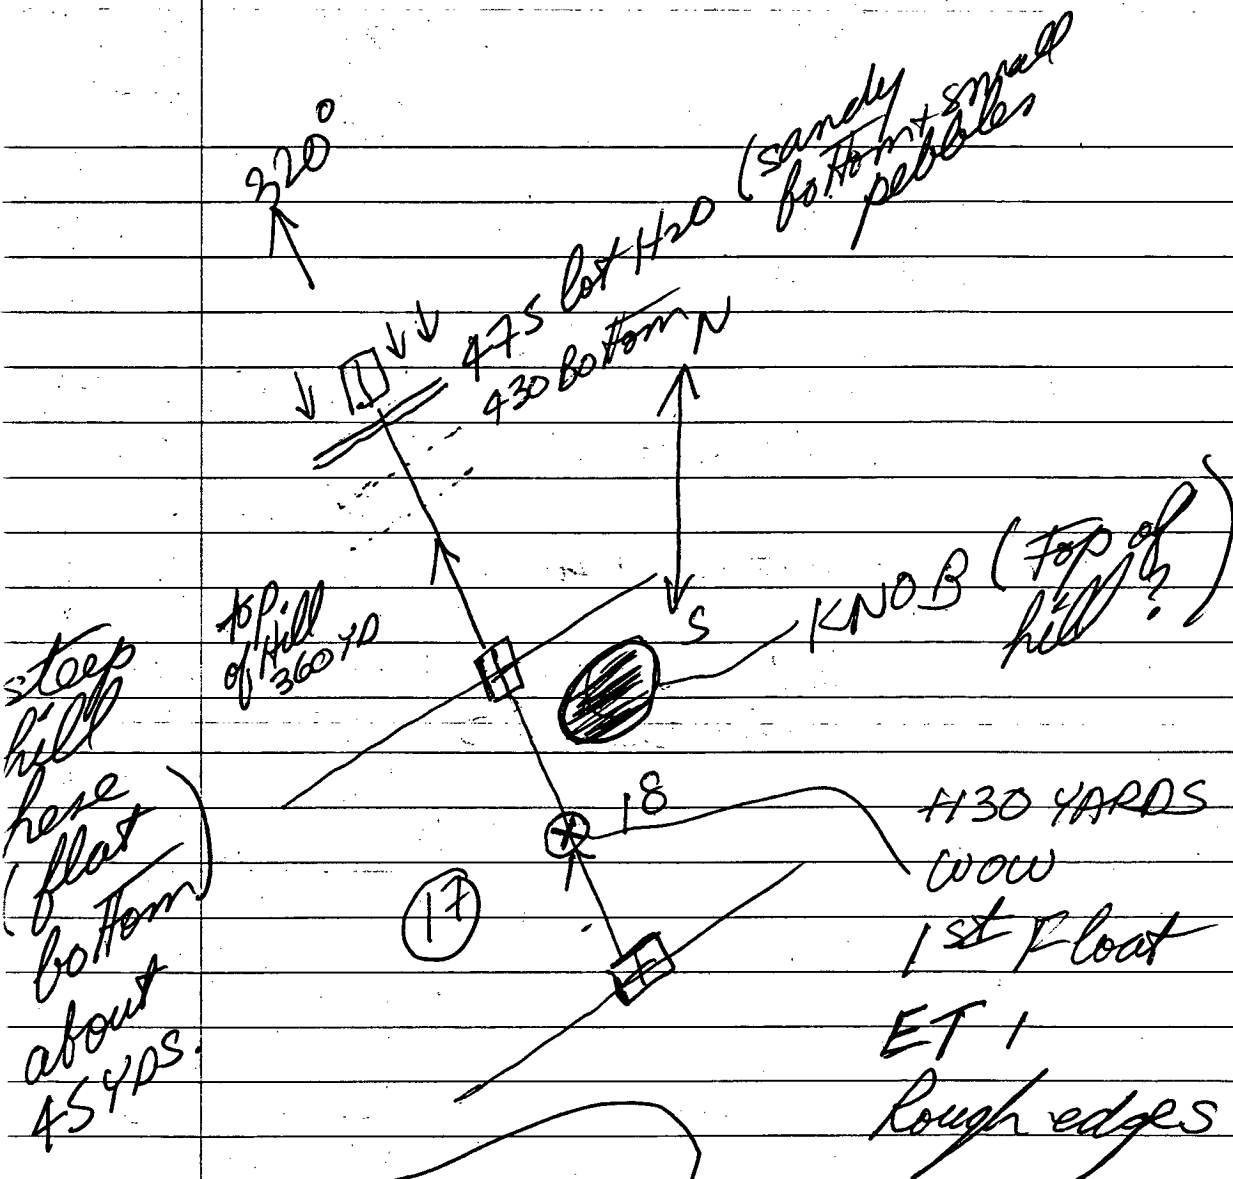 320°
475 lost H2O (sandy
bottom + small
pebbles
430 Bottom
N
S
KNOB (Top of
hill?)
top
of Hill
360 YD
steep
hill
here
(flat
bottom)
about
45 YDS.
18
17
+130 YARDS
WOW
1st Float
ET 1
Rough edges